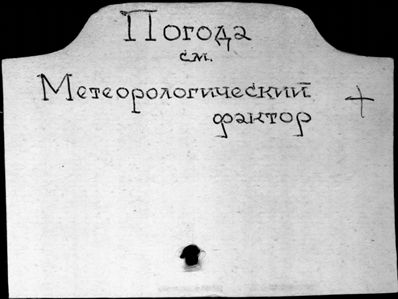 Погода
см.
Метеорологический +
фактор